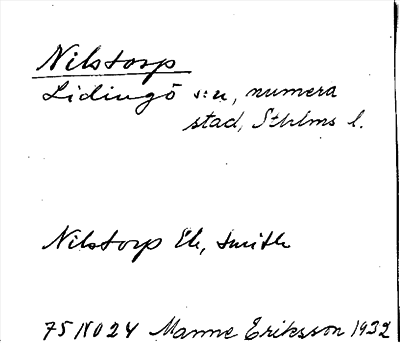 Nilstorp
Lidingö s:n, numera
stad, Sthlms l.
Nilstorp Ek, smith
75 NO 24 Manne Eriksson 1932